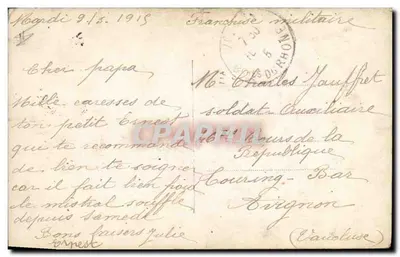 Mardi 9/3. 1915
Franchise militaire
Cher papa
Mille caresses de
ton petit Ernest
qui te recommande
de bien te soigner
car il fait bien froid
le mistral souffle
depuis samedi
Bons baisers Julie
Ernest
Mr Charles Jauffret
soldat Auxiliaire
Cours de la
République
Touring-Bar
Avignon
(Vaucluse)
CPAPHIL
RHONE